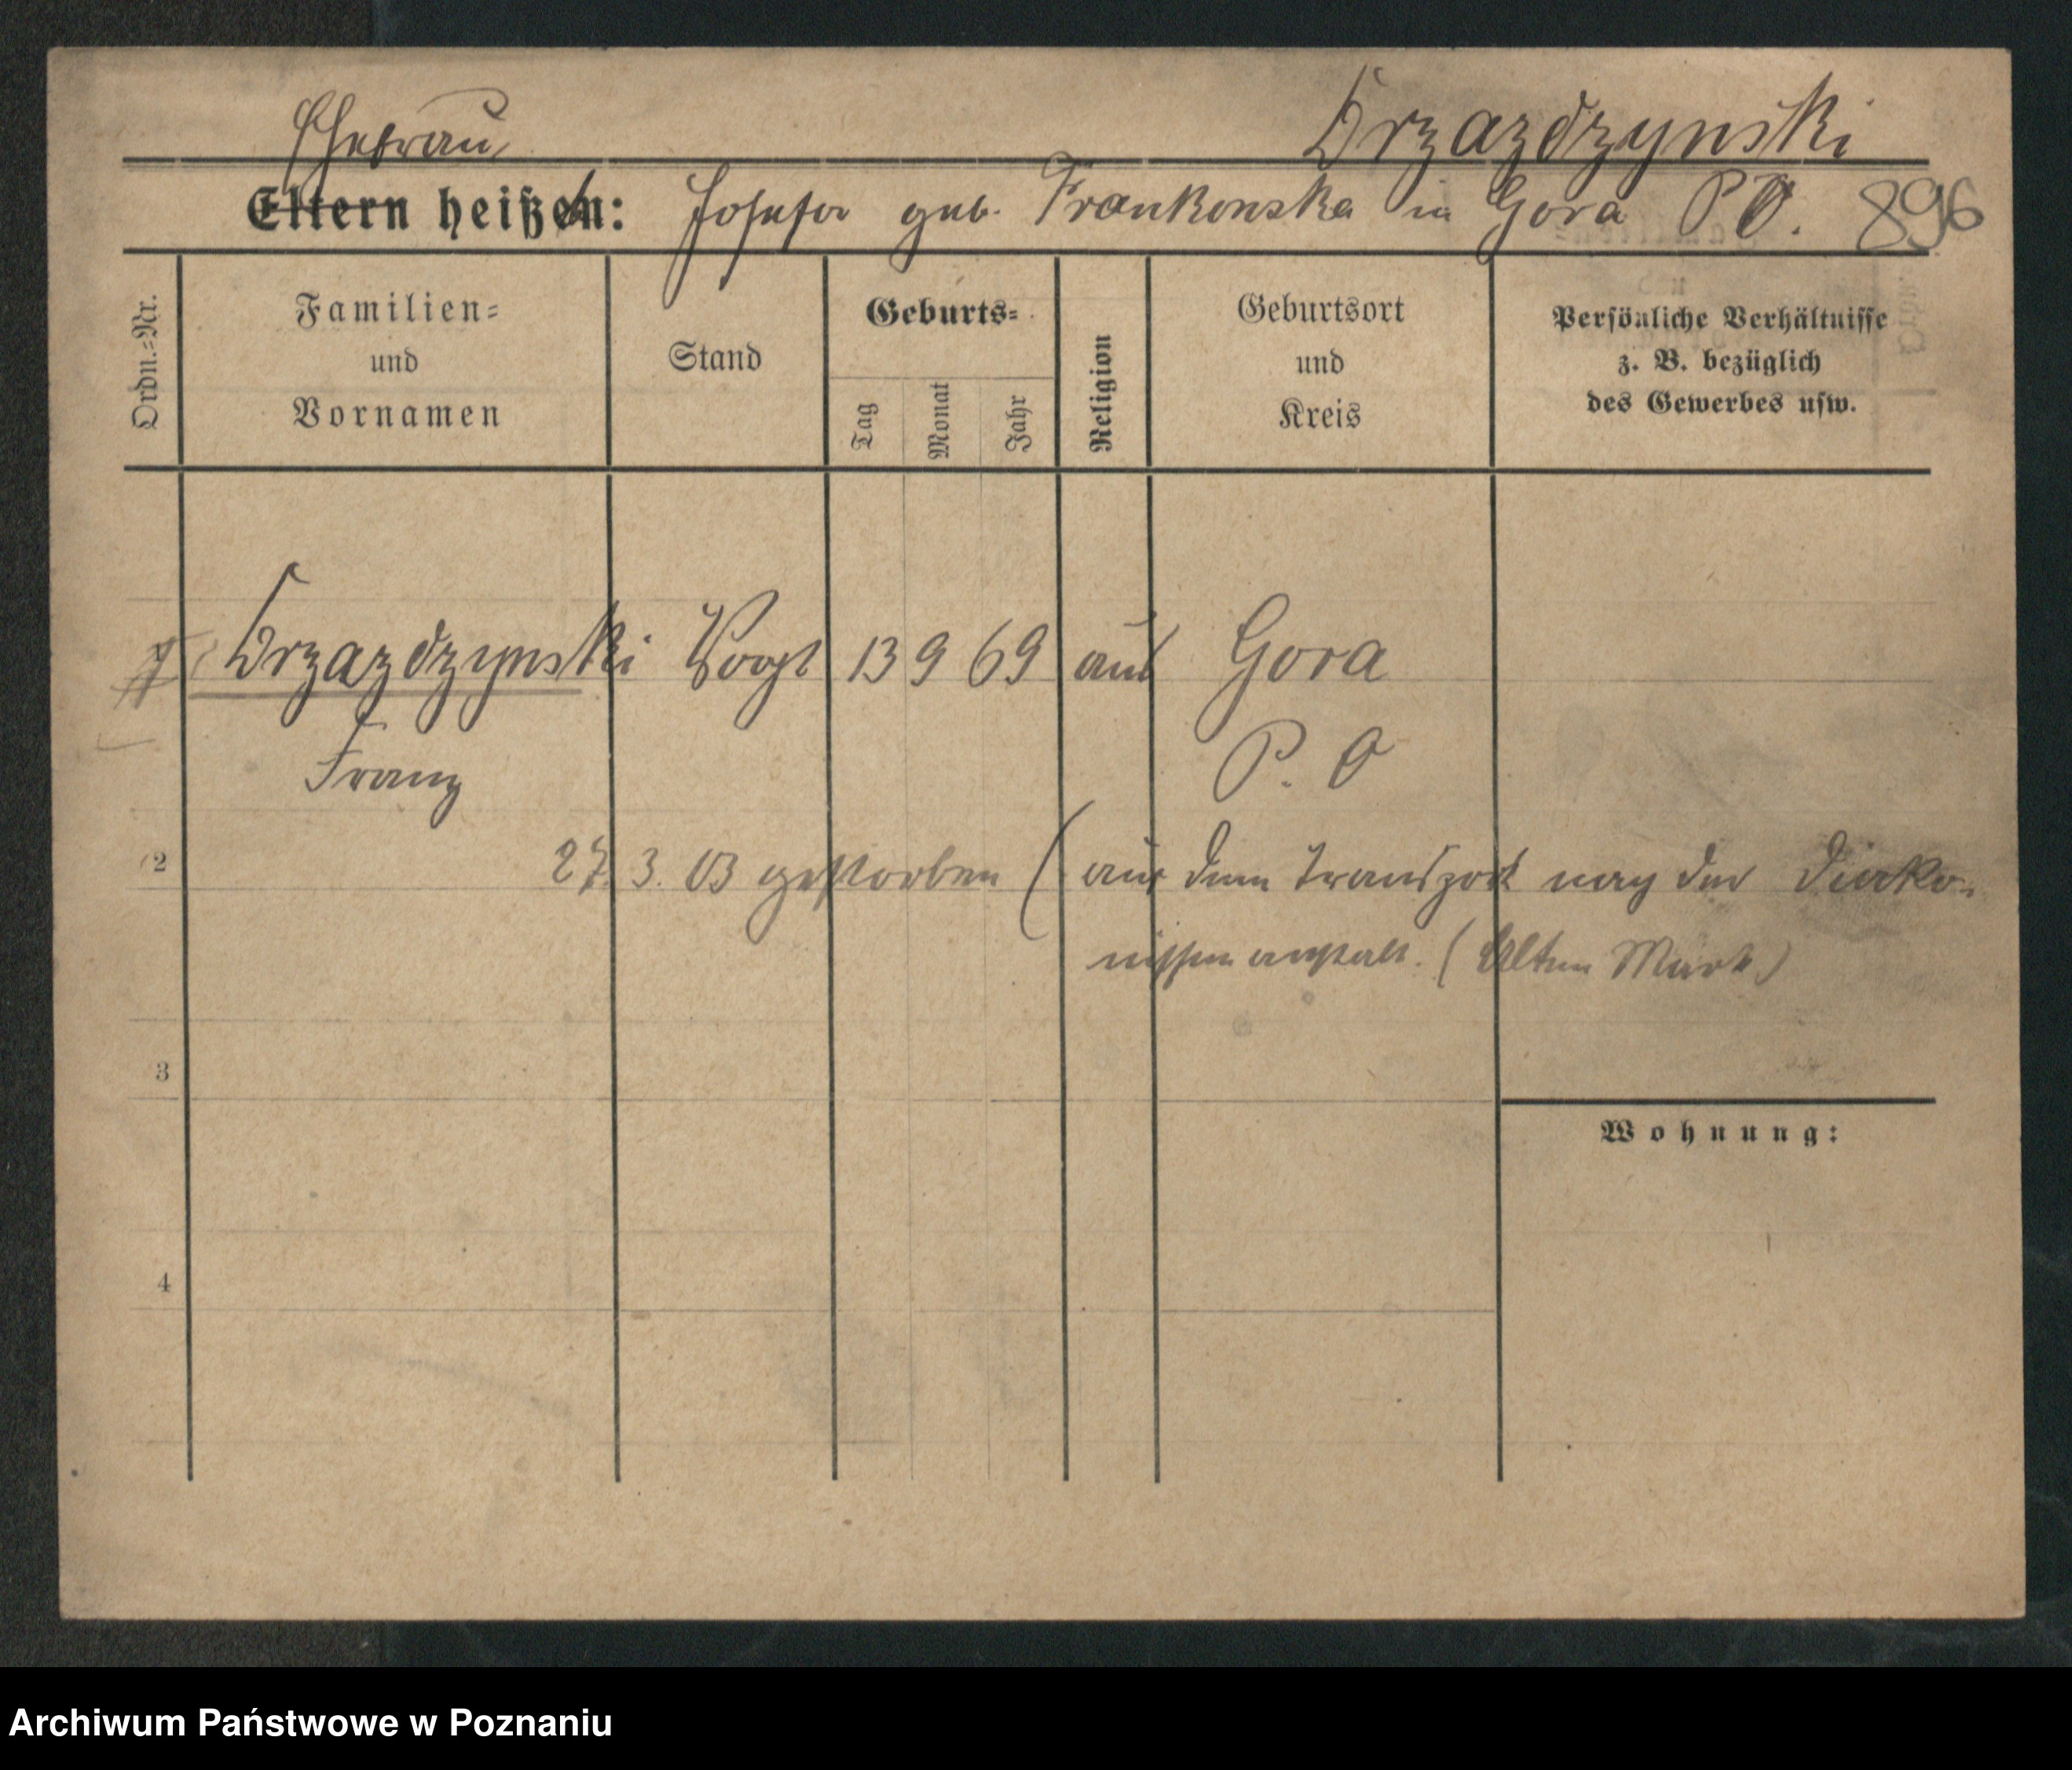 Drzazdzynski
Ehefrau
Eltern heißen: Josefa geb. Frankowska in Gora P O. 896
Ordn.=Nr.
Familien=
und
Vornamen
Stand
Geburts=
Tag
Monat
Jahr
Religion
Geburtsort
und
Kreis
Persönliche Verhältnisse
z. B. bezüglich
des Gewerbes usw.
1 Drzazdzynski Vogt 13 9 69 Gora
Franz P. O
2 27. 3. 03 gestorben ( auf dem Transport nach der Diako-
nissenanstalt. (Alten Markt)
3
Wohnung:
4
Archiwum Państwowe w Poznaniu